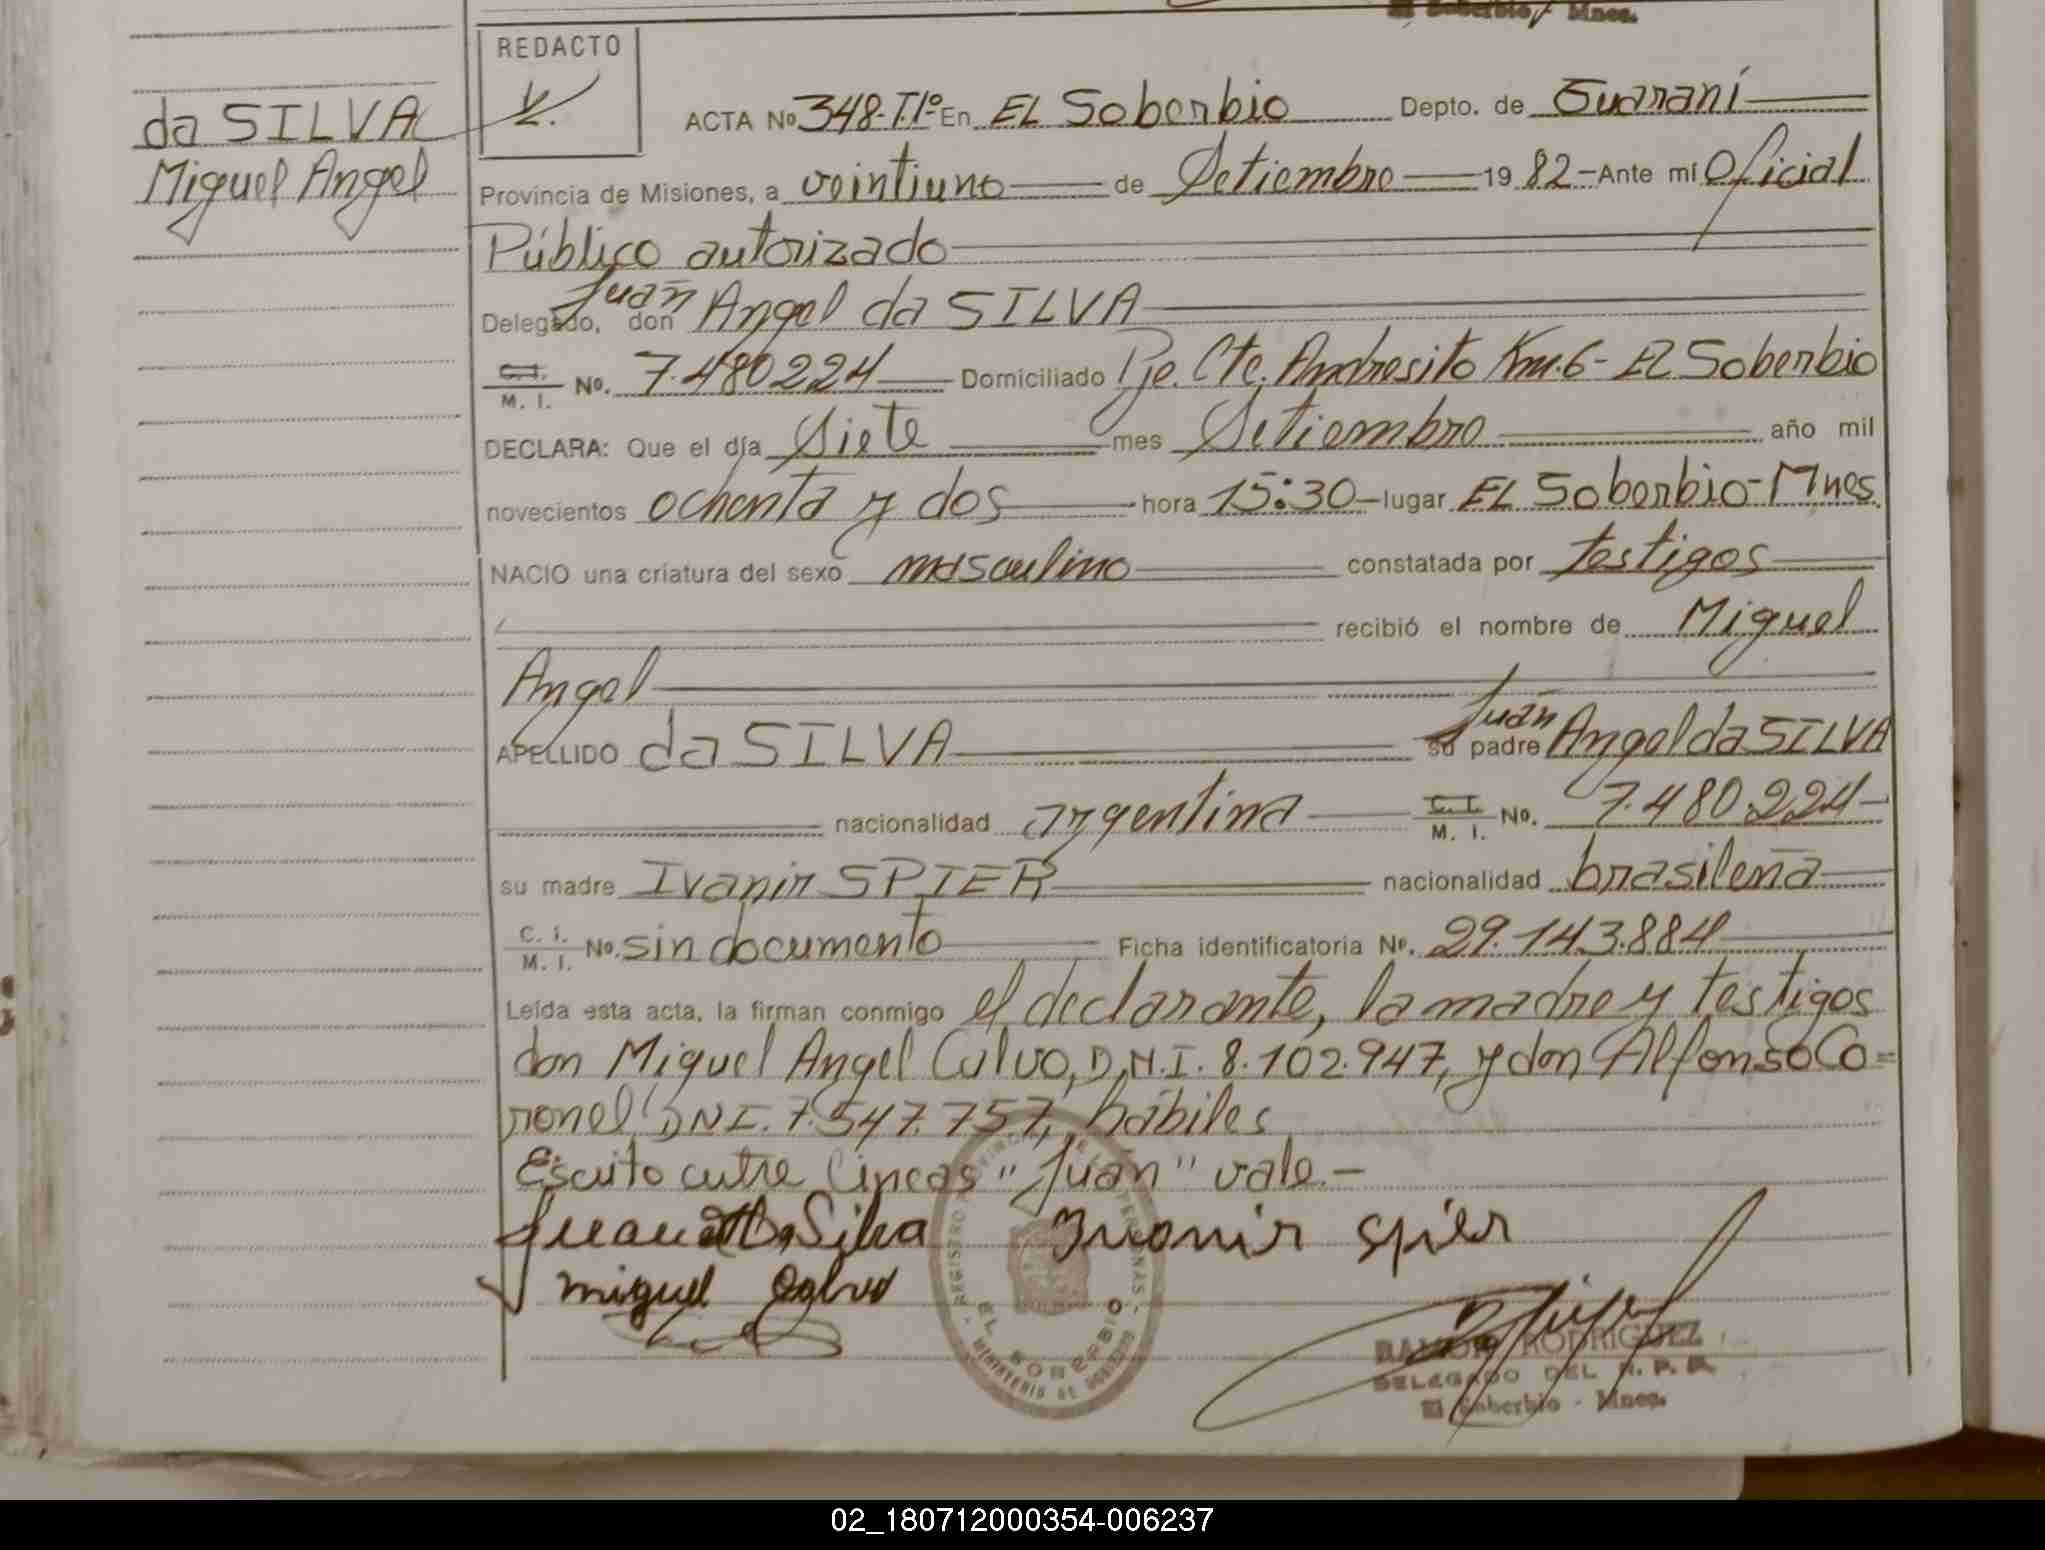 El Soberbio, Mnes.
REDACTO
da SILVA
Miguel Angel
ACTA No 348-T.1º En EL Soberbio Depto. de Guaraní
Provincia de Misiones, a veintiuno de Setiembre 1982- Ante mí Oficial
Público autorizado
Juan
Delegado, don Angel da SILVA
C.I. M. I. No. 7.480.224 Domiciliado Pje. Cte. Andresito Km.6- EL Soberbio
DECLARA: Que el día Siete mes Setiembre año mil
novecientos ochenta y dos hora 15:30 lugar EL Soberbio-Mnes.
NACIO una criatura del sexo masculino constatada por testigos
recibió el nombre de Miguel
Angel
Juan
APELLIDO da SILVA su padre Angel da SILVA
nacionalidad argentina C.I. M. I. No. 7.480.224-
su madre Ivanir SPIER nacionalidad brasileña
C. I. M. I. No. sin documento Ficha identificatoria No. 29.143.884
Leída esta acta, la firman conmigo el declarante, la madre y testigos
don Miguel Angel Calvo, D.N.I. 8.102.947, y don Alfonso Co=
ronel DNI. 7.547.757, hábiles
Escrito entre líneas "Juan" vale.-
Juan A Da Silva Ivanir Spier
Miguel Calvo
REGISTRO PROVINCIAL DE LAS PERSONAS
EL SOBERBIO
MINISTERIO DE GOBIERNO
RAMON RODRIGUEZ
DELEGADO DEL R. P. P.
El Soberbio - Mnes.
02_180712000354-006237